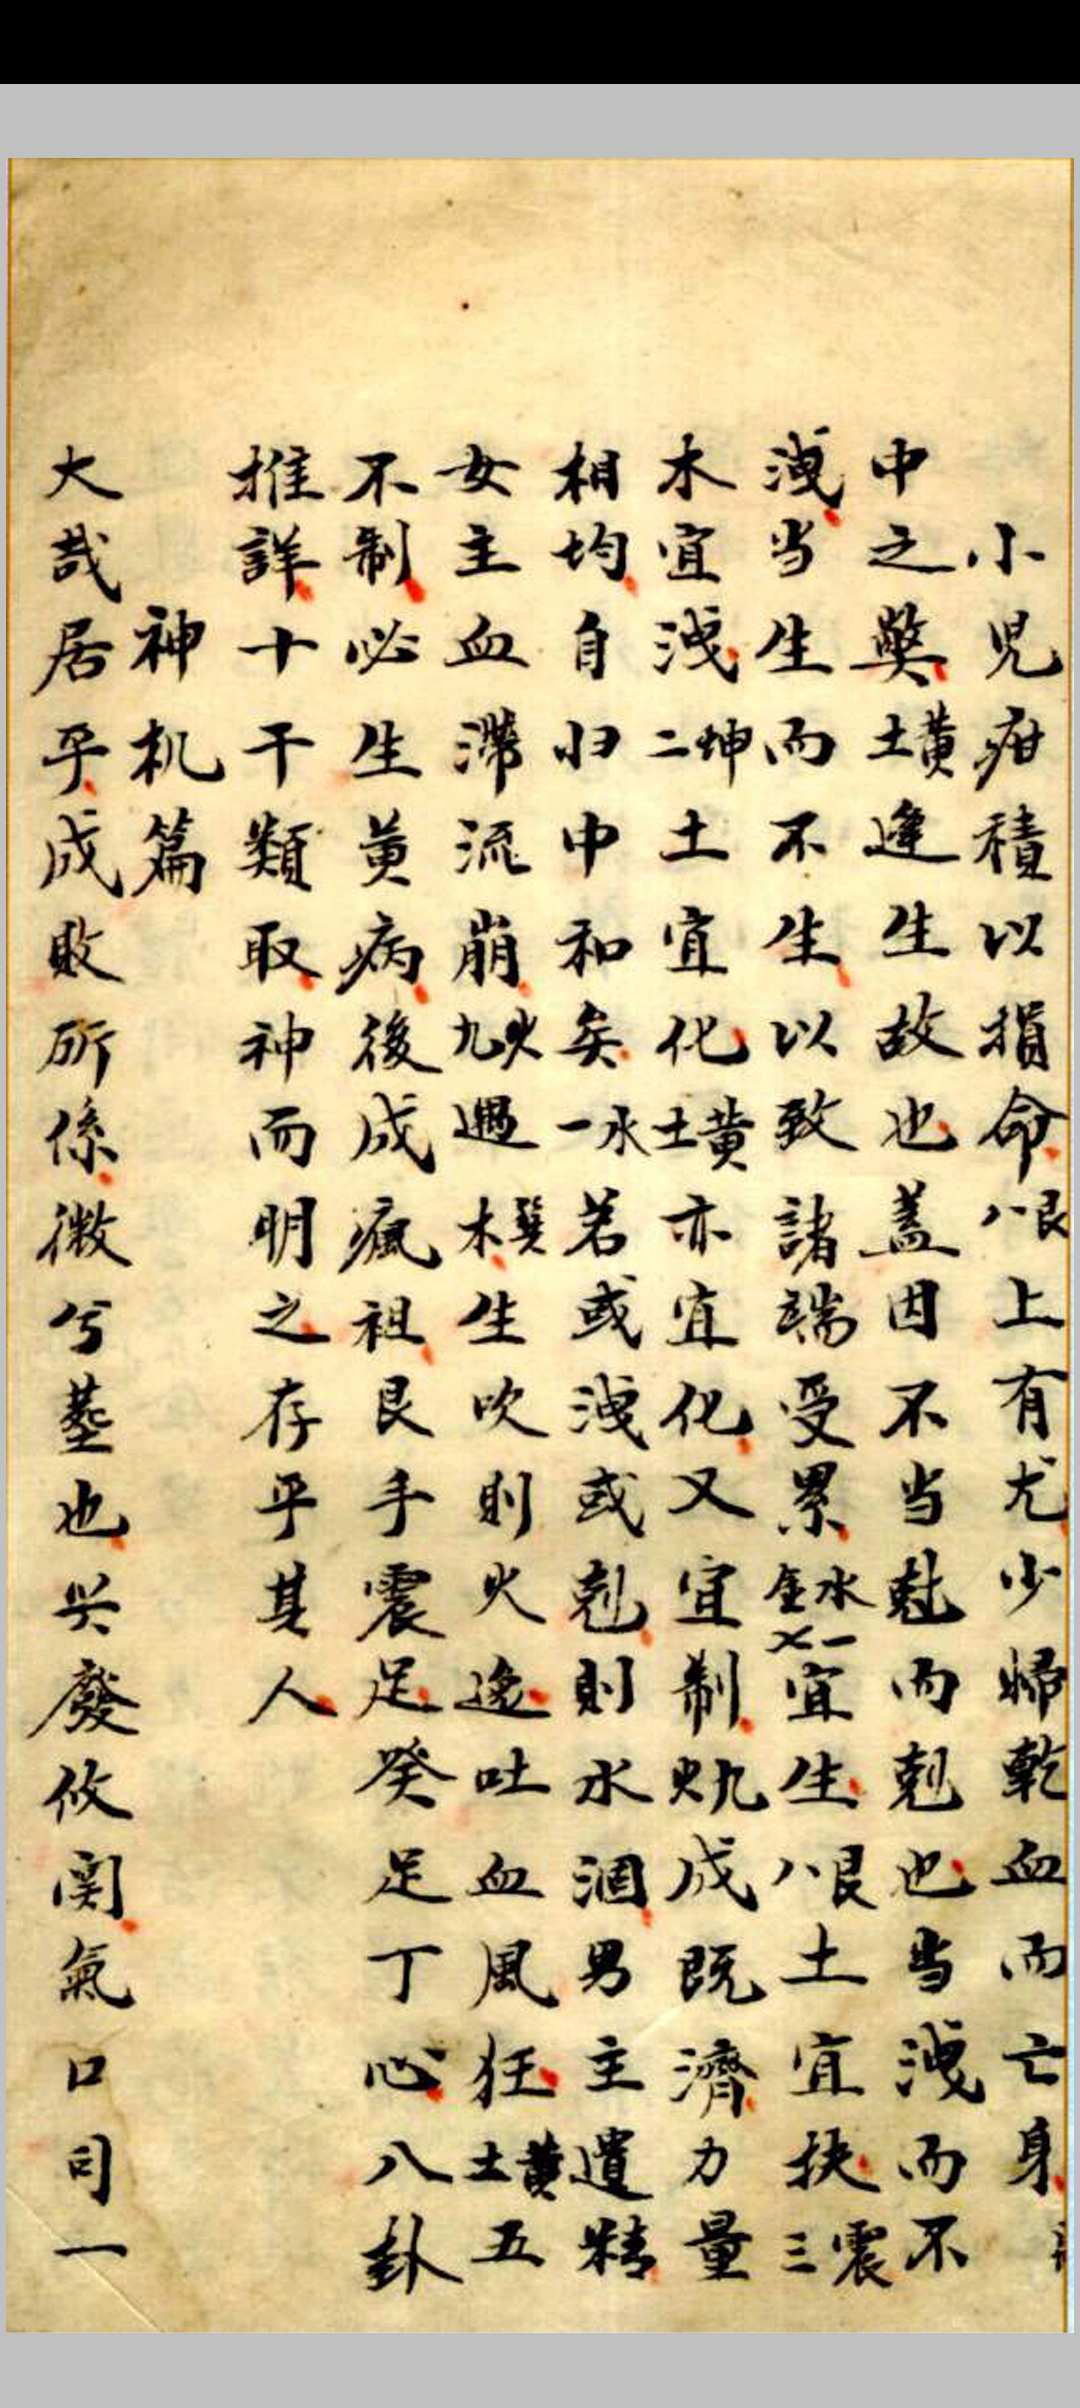 小児疳積以損命八艮上有尤少婦乾血而亡身
中之獘土黄逢生故也盖因不当尅而剋也当洩而不
洩当生而不生以致諸端受累金水七一宜生八艮土宜扶三震
木宜洩二坤土宜化土黄亦宜化又宜制火九成既濟力量
相均自归中和矣一水若或洩或剋則水涸男主遺精
女主血滞流崩九火遇木巽生吹則火逸吐血風狂土黄五
不制必生黄病後成瘋祖艮手震足癸足丁心八卦
推詳十干類取神而明之存乎其人
神机篇
大哉居乎成敗所係微兮墓也兴廢攸関氣口司一